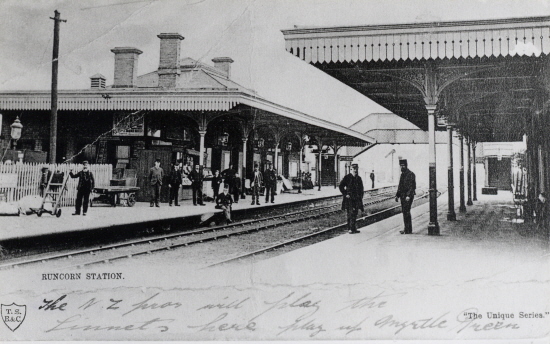 RUNCORN STATION.
T.S.
R&C.
"The Unique Series."
The N.Z pros will play the
Linnets here play up Myrtle Green